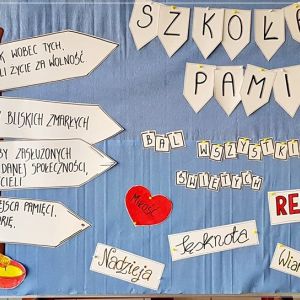 SZKOŁ
PAMI
K WOBEC TYCH,
LI ŻYCIE ZA WOLNOŚĆ
BLISKICH ZMARŁYCH
BY ZASŁUŻONYCH
DANEJ SPOŁECZNOŚCI,
CIELI
EJSCA PAMIĘCI,
ARIĘ.
BAL WSZYSTKI
ŚWIĘTYCH
Miłość
RE
Tęsknota
Nadzieja
Wiar